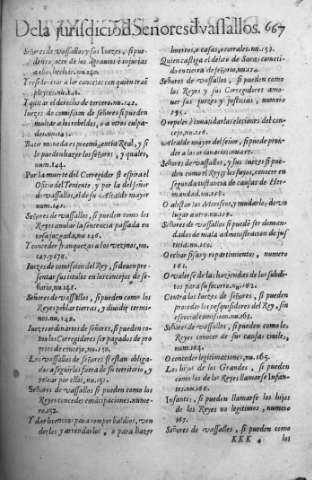 De la jurisdiciō d Señores d vassallos. 667
Señores de vassallos y sus Juezes, si pue
den co
a ellos hechas. nu.140.
a los concejos con quien traē
pleytos. nu.141.
Y quitar el derecho de tercero. nu.142.
Juezes de comission de señores si pueden
multar a los rebeldes, o a otros culpa-
dos. nu.143.
Batir moneda es preeminētia Real, y si
le pueden hazer los señores, y quales,
num.144.
Por la muerte del Corregidor si espira el
Oficio del Teniente, y por la del Señor
de vassallos, el de su Alcalde mayor
num.145.
Señores de vassallos, si pueden como los
Reyes anular la sentencia passada en
cosa juzgada. nu.146.
Y conceder franquezas a los vezinos, nu.
147. y 178.
Juezes de comission del Rey, si deuen pre-
sentar sus titulos en los concejos de se-
ñorio, nu.148.
Señores de vassallos, si pueden como los
Reyes poblar tierras, y diuidir termi-
nos. nu.149.
Juezes ordinarios de señores, si pueden co-
mo los Corregidores ser pagados de pro-
pios de concejo, nu.150.
Los vassallos de señores si estan obliga-
dos a seguirlos fuera de su territorio, y
pelear por ellos, nu.151.
Señores de vassallos si pueden como los
Reyes conceder emancipaciones. nume-
ro.152.
Y dar licencia para romper baldios, ven
der los y arrendarlos, o para hazer
huertos, o casas, o corrales. nu.153.
Quien castiga el delito de
do en tierra de señorio. nu.154.
Señores de vassallos, si pueden como
los Reyes y sus Corregidores amo-
uer sus juezes y justicias, numero
155.
O reprouar o mudar las electiones del con-
cejo, nu.156.
Alcalde mayor del señor, si puede proue-
er a los ordinarios nu.157.
Señores de vassallos, y sus juezes si pue-
den como el Rey y los suyos, conocer en
segunda instancia de causas de Her-
mandad. nu.158.
O alistar los Moriscos, y mudarlos, de vn
lugar a otro. nu.159.
Señores de vassallos si puedē ser deman-
dados de mala administracion de jus-
ticia. nu.160.
O echar sisas y repartimientos, numero
161.
O valerse de las haziendas de los subdi-
tos para su socorro. nu.162.
Contra los Juezes de señores, si pueden
proceder los pesquisidores del Rey, sin
especial comissiō. nu.163.
Señores de vassallos, si pueden como los
Reyes conocer de sus causas ciuiles,
num.164.
O conceder legitimaciones, nu.165.
Los hijos de los Grandes, si pueden
como los de los Reyes llamarse Infan-
tes. nu.166.
Infantes, si pueden llamarse los hijos
de los Reyes no legitimos, numero
167.
Señores de vassallos, si pueden como
KKK 4 los